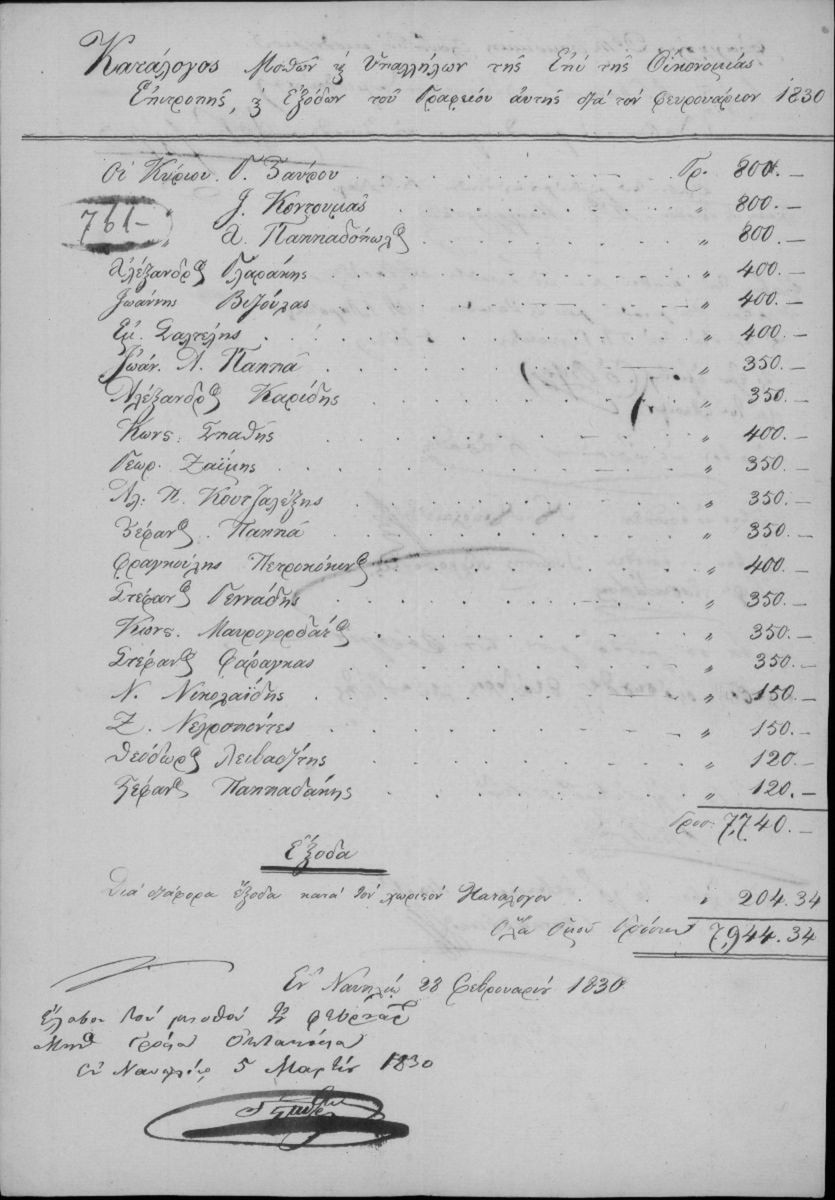 Κατάλογος Μισθῶν κ Ὑπαλλήλων τῆς Ἐπὶ τῆς Οἰκονομίας
Ἐπιτροπῆς, κ Ἐξόδων τοῦ Γραφείου αὐτῆς διὰ τὸν φευρουάριον 1830
Οἱ Κύριοι Γ. Σταύρου Γρ. 800.—
761— Ι. Κοντουμᾶς „ 800.—
„ Α. Παππαδόπωλος „ 800.—
Ἀλέξανδρος Γλαράκης „ 400.—
Ἰωάννης Βιζούλας „ 400.—
Ἐμ. Σαλτέλης „ 400.—
Ἰωάν. Α. Παππᾶ „ 350.—
Ἀλέξανδρος Καρίδης „ 350.—
Κωνς. Σπαθῆς „ 400.—
Γεωρ. Ζαΐμης „ 350.—
Ἀλ. Π. Κουτζαλέξης „ 350.—
Στέφαν. Παππᾶ „ 350.—
Φραγκούλης Πετροκόκινος „ 400.—
Στέφανος Γεννάδης „ 350.—
Κωνς. Μαυρογορδάτος „ 350.—
Στέφανος Φαράγκας „ 350.—
Ν. Νικολαΐδης „ 150.—
Ζ. Νεγρεπόντες „ 150.—
Θεόδωρος Λειβαδίτης „ 120.—
Στέφανος Παππαδάκης „ 120.—
Γροσ. 7,740.—
Ἔξοδα
Διὰ διάφορα ἔξοδα κατὰ τὸν χωριστὸν Κατάλογον „ 204.34
Ὅλα ὁμοῦ Γρόσια 7,944.34
Ἐν Ναυπλίῳ 28 Φεβρουαρίου 1830
Ἔλαβον τὸν μισθὸν τοῦ φευρουαρ
μηνὸς γρόσια ὀκτακόσια
Ἐν Ναυπλίῳ 5 Μαρτίου 1830
Γ Σταύρου